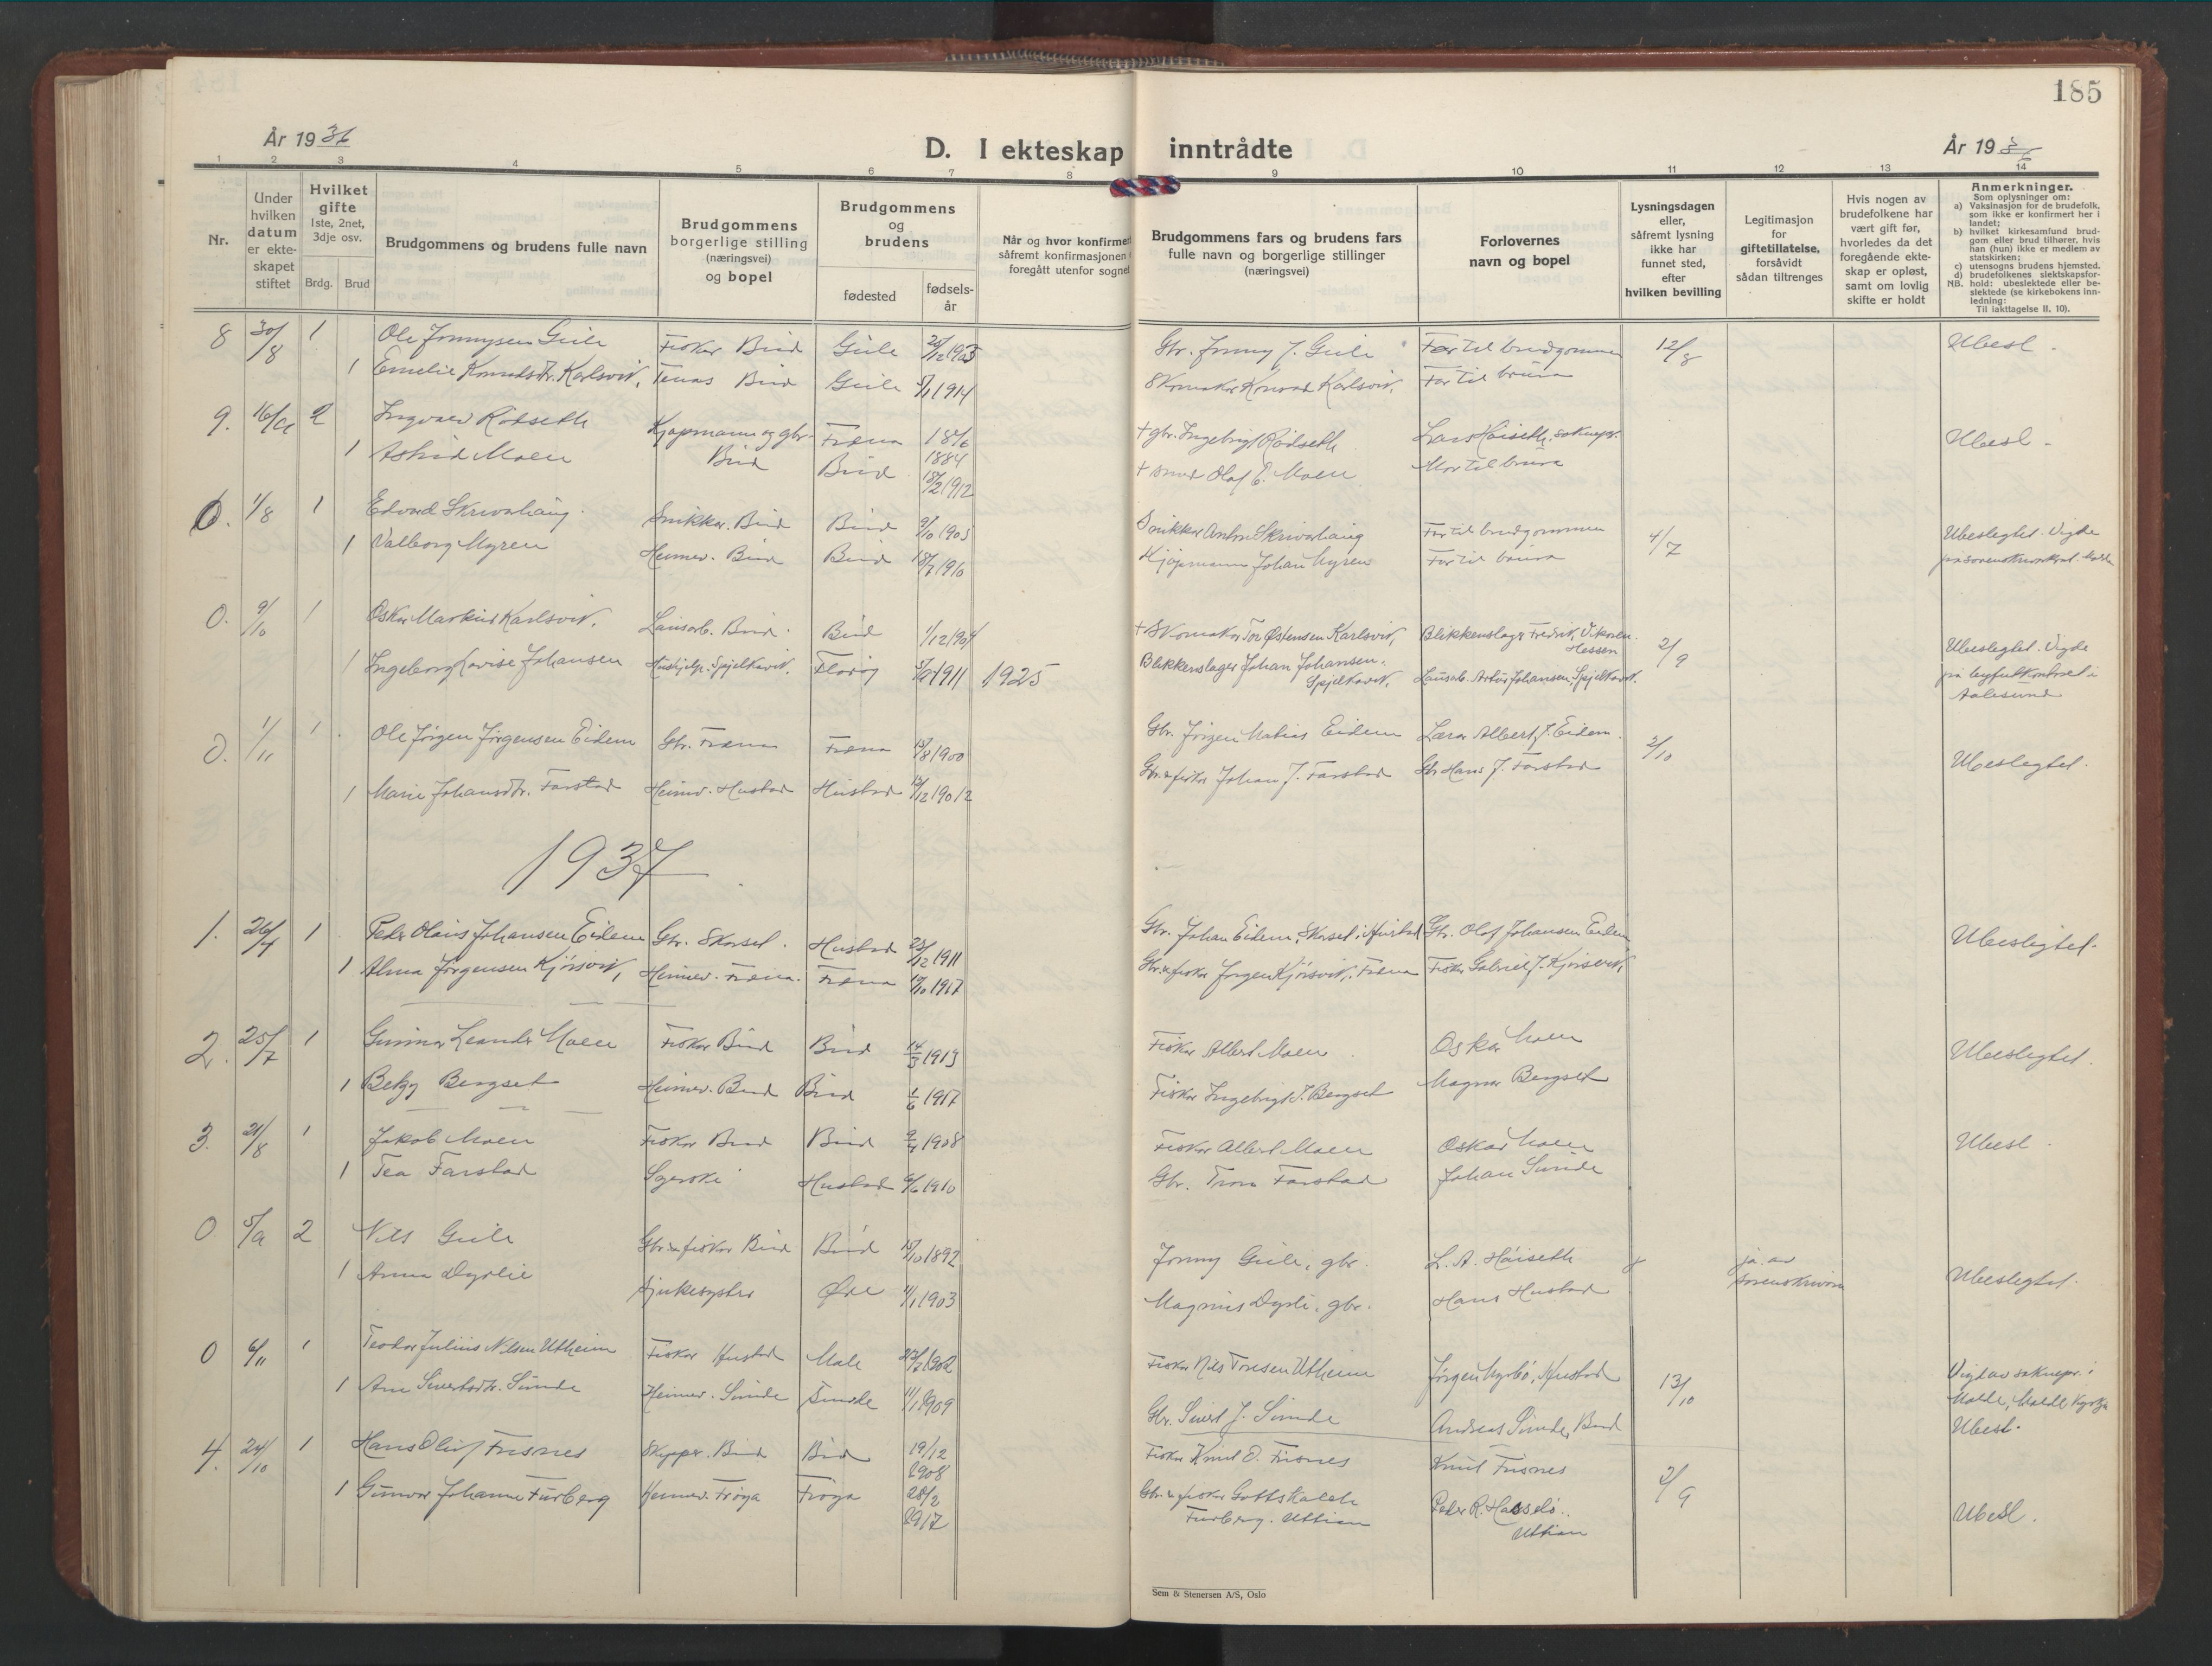 185
År 1936
D. I ekteskap inntrådte
År 1936
1 2 3 4 5 6 7 8 9 10 11 12 13 14
Nr.
Under hvilken datum er ekte-skapet stiftet
Hvilket gifte 1ste, 2net, 3dje osv.
Brdg. Brud
Brudgommens og brudens fulle navn
Brudgommens borgerlige stilling (næringsvei) og bopel
Brudgommens og brudens
fødested
fødsels-år
Når og hvor konfirmert
såfremt konfirmasjonen
foregått utenfor sognet
Brudgommens fars og brudens fars
fulle navn og borgerlige stillinger
(næringsvei)
Forlovernes
navn og bopel
Lysningsdagen
eller,
såfremt lysning
ikke har
funnet sted,
efter
hvilken bevilling
Legitimasjon
for
giftetillatelse,
forsåvidt
sådan tiltrenges
Hvis nogen av
brudefolkene har
vært gift før,
hvorledes da det
foregående ekte-
skap er opløst,
samt om lovlig
skifte er holdt
Anmerkninger.
Som oplysninger om:
a) Vaksinasjon for de brudefolk, som ikke er konfirmert her i landet;
b) hvilket kirkesamfund brud-gom eller brud tilhører, hvis han (hun) ikke er medlem av statskirken;
c) utensogns brudens hjemsted.
d) brudefolkenes slektskapsfor-
NB. hold: ubeslektede eller be-slektede (se kirkebokens inn-ledning:
Til iakttagelse II. 10).
8 30/8 1 Ole Jonnysen Guile Fisker Bud Guile 1905 Gbr. Jonny J. Guile Far til brudgommen 12/8 Ubesl.
1 Emelie Konradsdr. Karlsvik, Bud Guile 5/1 1914 Skomaker Konrad Karlsvik, Far til brura
9. 16/9 2 Ingvald Rødseth Kjøpmann og gbr. Fræna 18/6 1884 + gbr. Ingebrigt Rødseth Lars Høiseth, soknepr. Ubesl.
1 Astrid Moen Bud Bud 18/2 1912 + smed Olaf E. Moen Mor til brura
0. 1/8 1 Edvard Skrivarhaug Snikkar. Bud Bud 9/10 1905 Snikkar Anton Skrivarhaug Far til brudgommen 4/7 Ubeslegtet. Vigde
1 Valborg Myren Heimev. Bud Bud 18/7 1910 Kjøpmann Johan Myren Far til brura på sorenskrivarkont. Molde
0. 9/10 1 Oskar Markus Karlsvik. Lausarb. Bud. Bud 1/12 1904 + Skomaker Tor Østensen Karlsvik, Blikkenslager Fredrik Vikøren. Hessen 2/9 Ubeslegtet. Vigde
1 Ingeborg Lovise Johansen Hushjelp. Spjelkavik. Florøy 5/9 1911 1925 Blikkenslager Johan Johansen. Spjelkavik, Lausarb. Artur Johansen, Spjelkavik. på byfutkontoret i
Aalesund
0. 1/11 1 Ole Jørgen Jørgensen Eidem Gbr. Fræna Fræna 15/8 1900 Gbr. Jørgen Matias Eidem Lærar Albert J. Eidem. 2/10 Ubeslegtet.
1 Marie Johansdtr. Farstad Heimev. Hustad Hustad Gbr. & fisker Johan J. Farstad Gbr. Hans J. Farstad
1937
1. 26/4 1 Peder Olaus Johansen Eidem Gbr. Skarset. Hustad 23/12 1911 Gbr. Johan Eidem, Skarset i Hustad Gbr. Olaf Johansen Eidem Ubeslegtet.
1 Alma Jørgensen Kjørsvik, Heimev. Fræna. Fræna 17/10 1917 Gbr. & fisker Jørgen Kjørsvik, Fræna Fisker Gabriel J. Kjørsvik,
2. 25/7 1 Gunnar Leander Moen Fisker Bud Bud 14/3 1913 Fisker Albert Moen Oskar Moen Ubeslegtet.
1 Betzy Bergset Heimev. Bud Bud 1/6 1917 Fisker Ingebrigt J. Bergset Magnar Bergset
3. 21/8 1 Jakob Moen Fisker Bud Bud 9/4 1908 Fisker Albert Moen Oskar Moen Ubesl.
1 Tea Farstad Hustad 6/6 1910 Gbr. Farstad Johan Sunde
0 5/9 2 Nils Guile Gbr. & fisker Bud Bud 15/10 1892 Jonny Guile, gbr. L. A. Høiseth ja. av Ubeslegtet.
1 Anna Dyrlie Sjukesyster Øre 11/1 1903 Magnus Dyrli, gbr. Hans Hustad sorenskrivaren
0 6/11 1 Teodor Julius Nilsen Utheim Fisker Hustad Male 1902 Fisker Nils Toresen Utheim Jørgen Myrbø, Hustad 13/10 Vigd av soknepr. i
1 Ane Sivertsdtr. Sunde Heimev. Sunde Sunde 11/1 1909 Gbr. Sivert J. Sunde Andreas Sunde, Bud Molde, Molde kyrkje
Ubesl.
4. 24/10 1 Hans Oluf Frisnes Skipper. Bud Bud 19/12 1908 Fisker Knut O. Frisnes Knut Frisnes 2/9
1 Gunvor Johanne Furberg Heimev. Frøya Frøya 28/2 1917 Gbr. & fisker Gottskalch Furberg. Uttian Peder R. Hasselø. Uttian Ubesl.
Sem & Stenersen A/S, Oslo